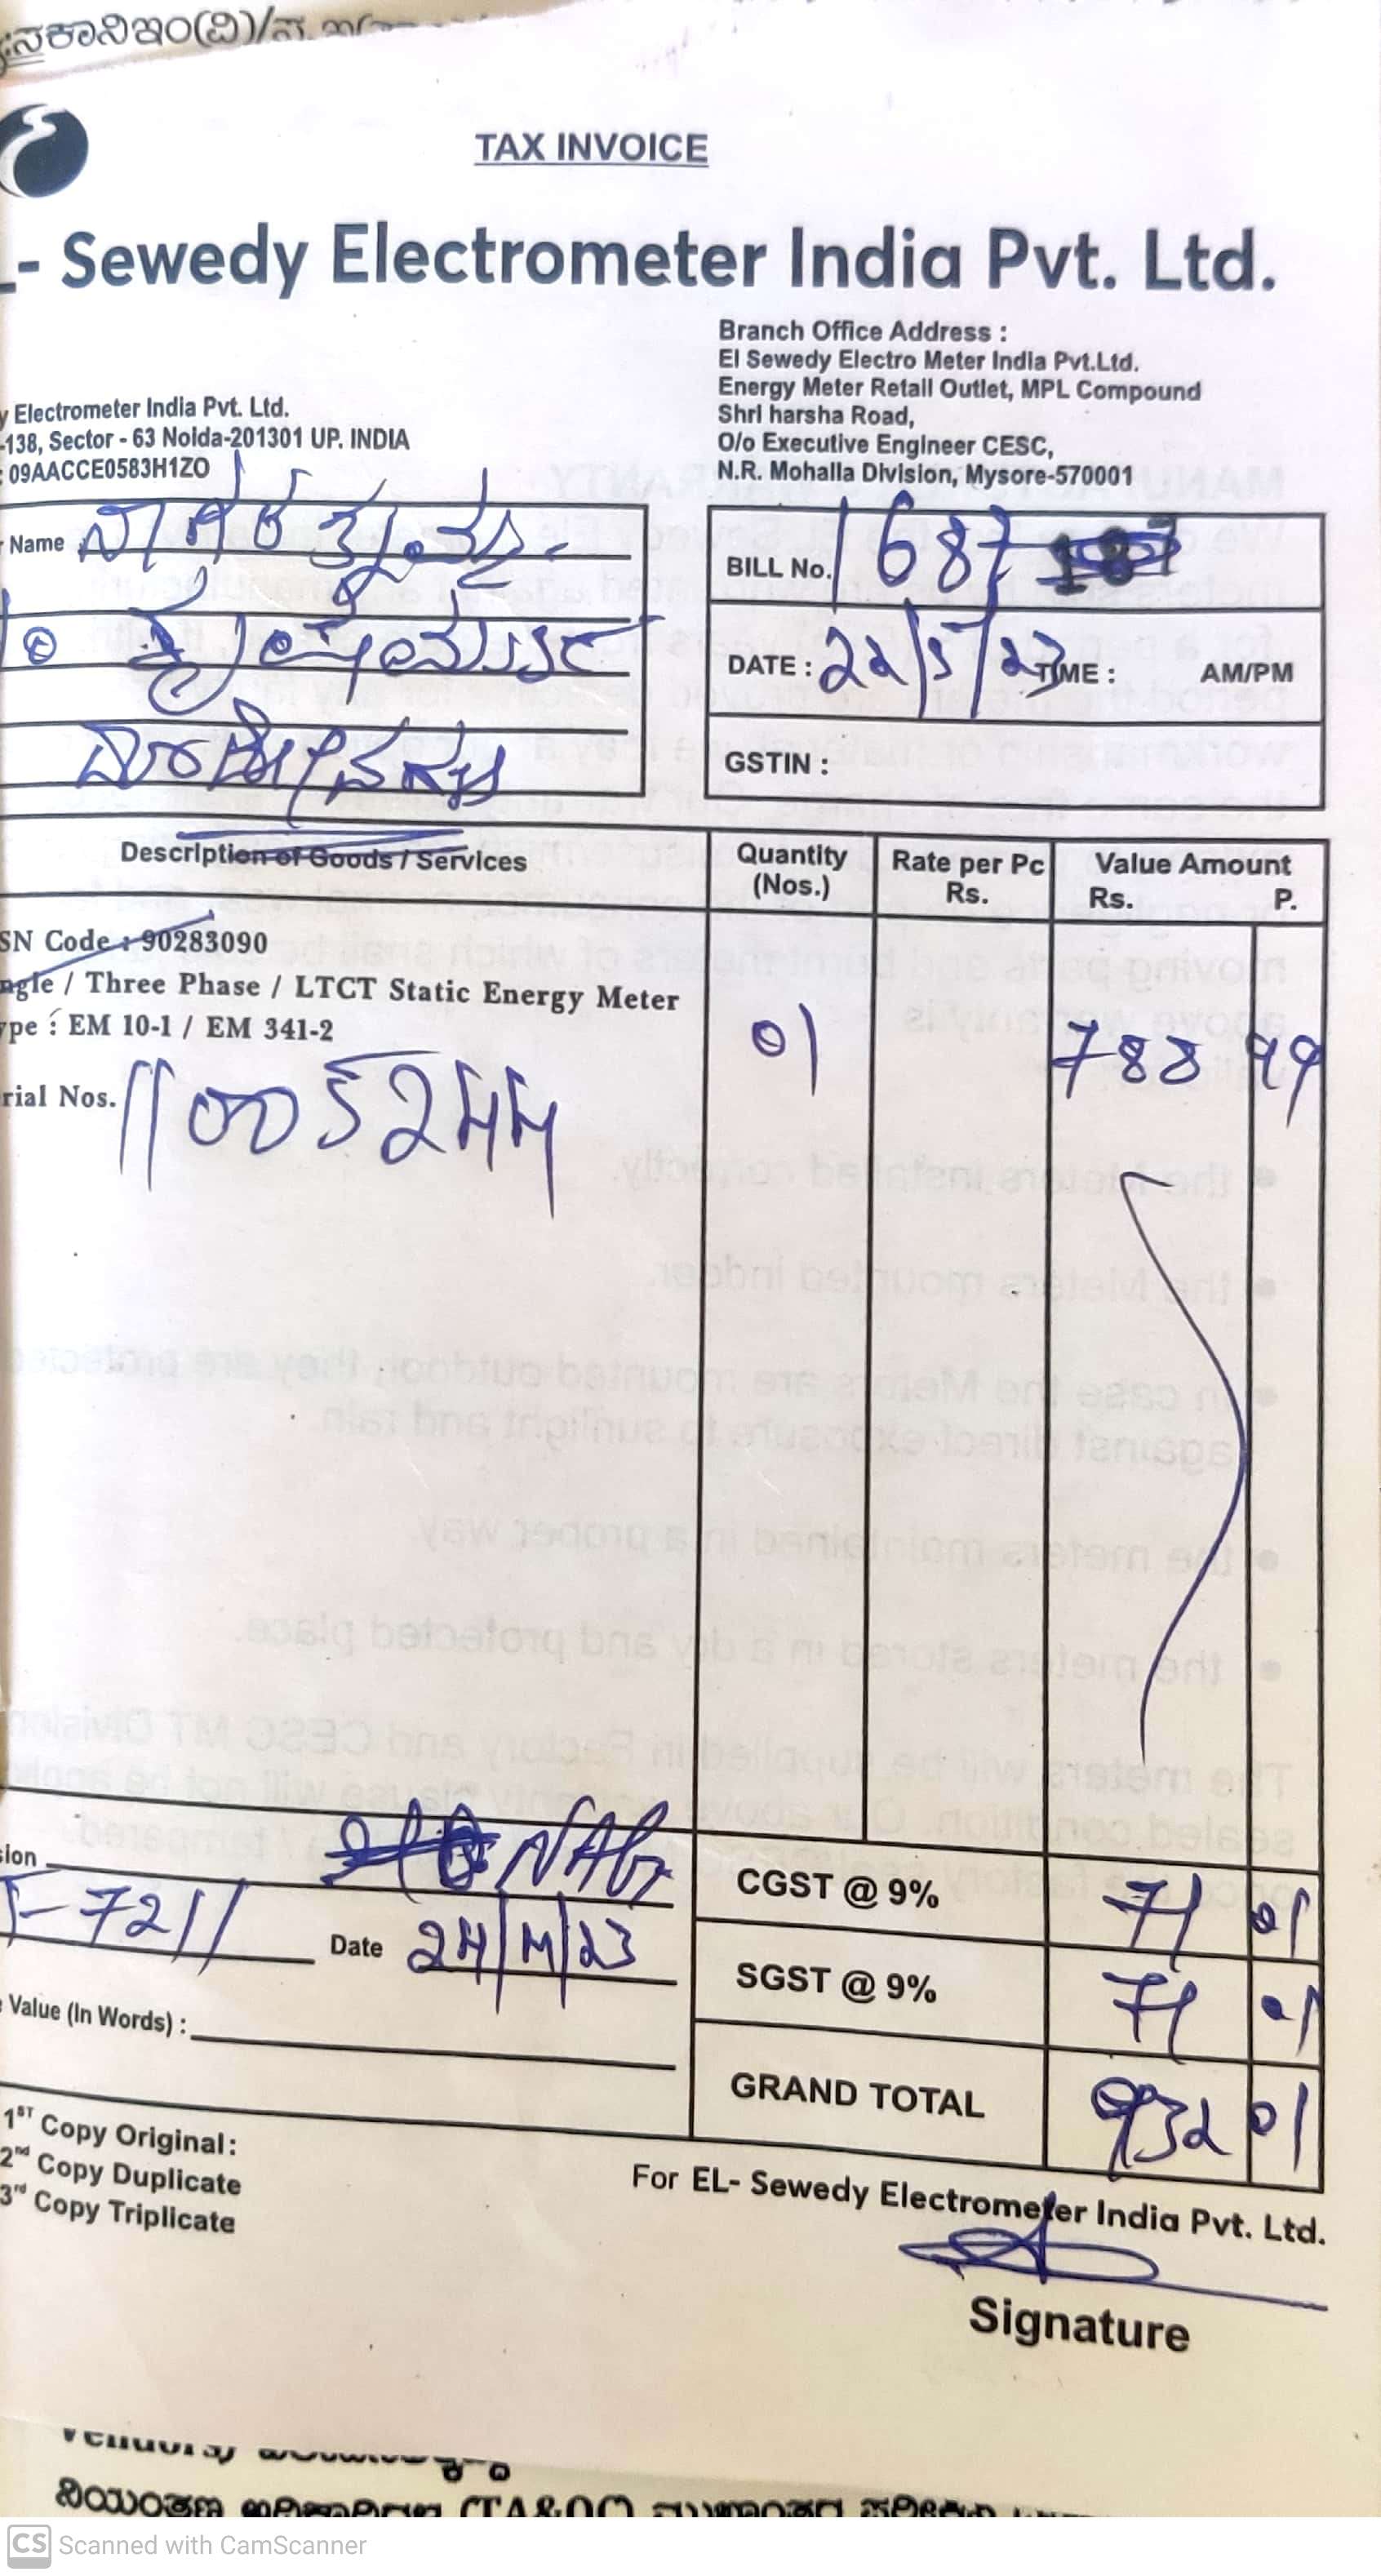 TAX INVOICE
- Sewedy Electrometer India Pvt. Ltd.
Branch Office Address :
El Sewedy Electro Meter India Pvt.Ltd.
Energy Meter Retail Outlet, MPL Compound
Shri harsha Road,
O/o Executive Engineer CESC,
N.R. Mohalla Division, Mysore-570001
y Electrometer India Pvt. Ltd.
-138, Sector - 63 Noida-201301 UP. INDIA
: 09AACCE0583H1ZO
Name
BILL No. 1687
DATE : 22/5/23 TIME : AM/PM
GSTIN :
Description of Goods / Services Quantity (Nos.) Rate per Pc Rs. Value Amount Rs. P.
SN Code : 90283090
ngle / Three Phase / LTCT Static Energy Meter
ype : EM 10-1 / EM 341-2 01 788 99
rial Nos. 11005244
sion
7211 Date 24/M/23
CGST @ 9% 71 01
SGST @ 9% 71 01
Value (In Words) :
GRAND TOTAL 932 01
1ST Copy Original:
2nd Copy Duplicate
3rd Copy Triplicate
For EL- Sewedy Electrometer India Pvt. Ltd.
Signature
CS Scanned with CamScanner